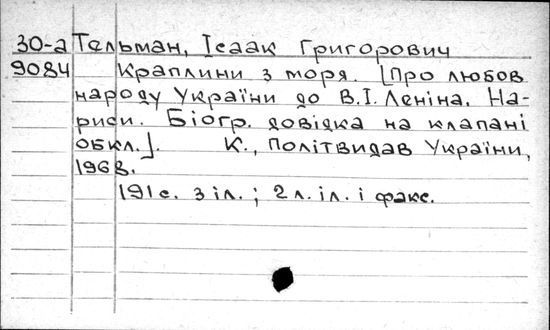 30-а Тельман, Ісаак Григорович
9084 Краплини з моря. [Про любов
народу України до В.І. Леніна. На-
риси. Біогр. довідка на клапані
обкл.]. К., Політвидав України,
1968.
191 с. з іл.; 2 л. іл. і факс.